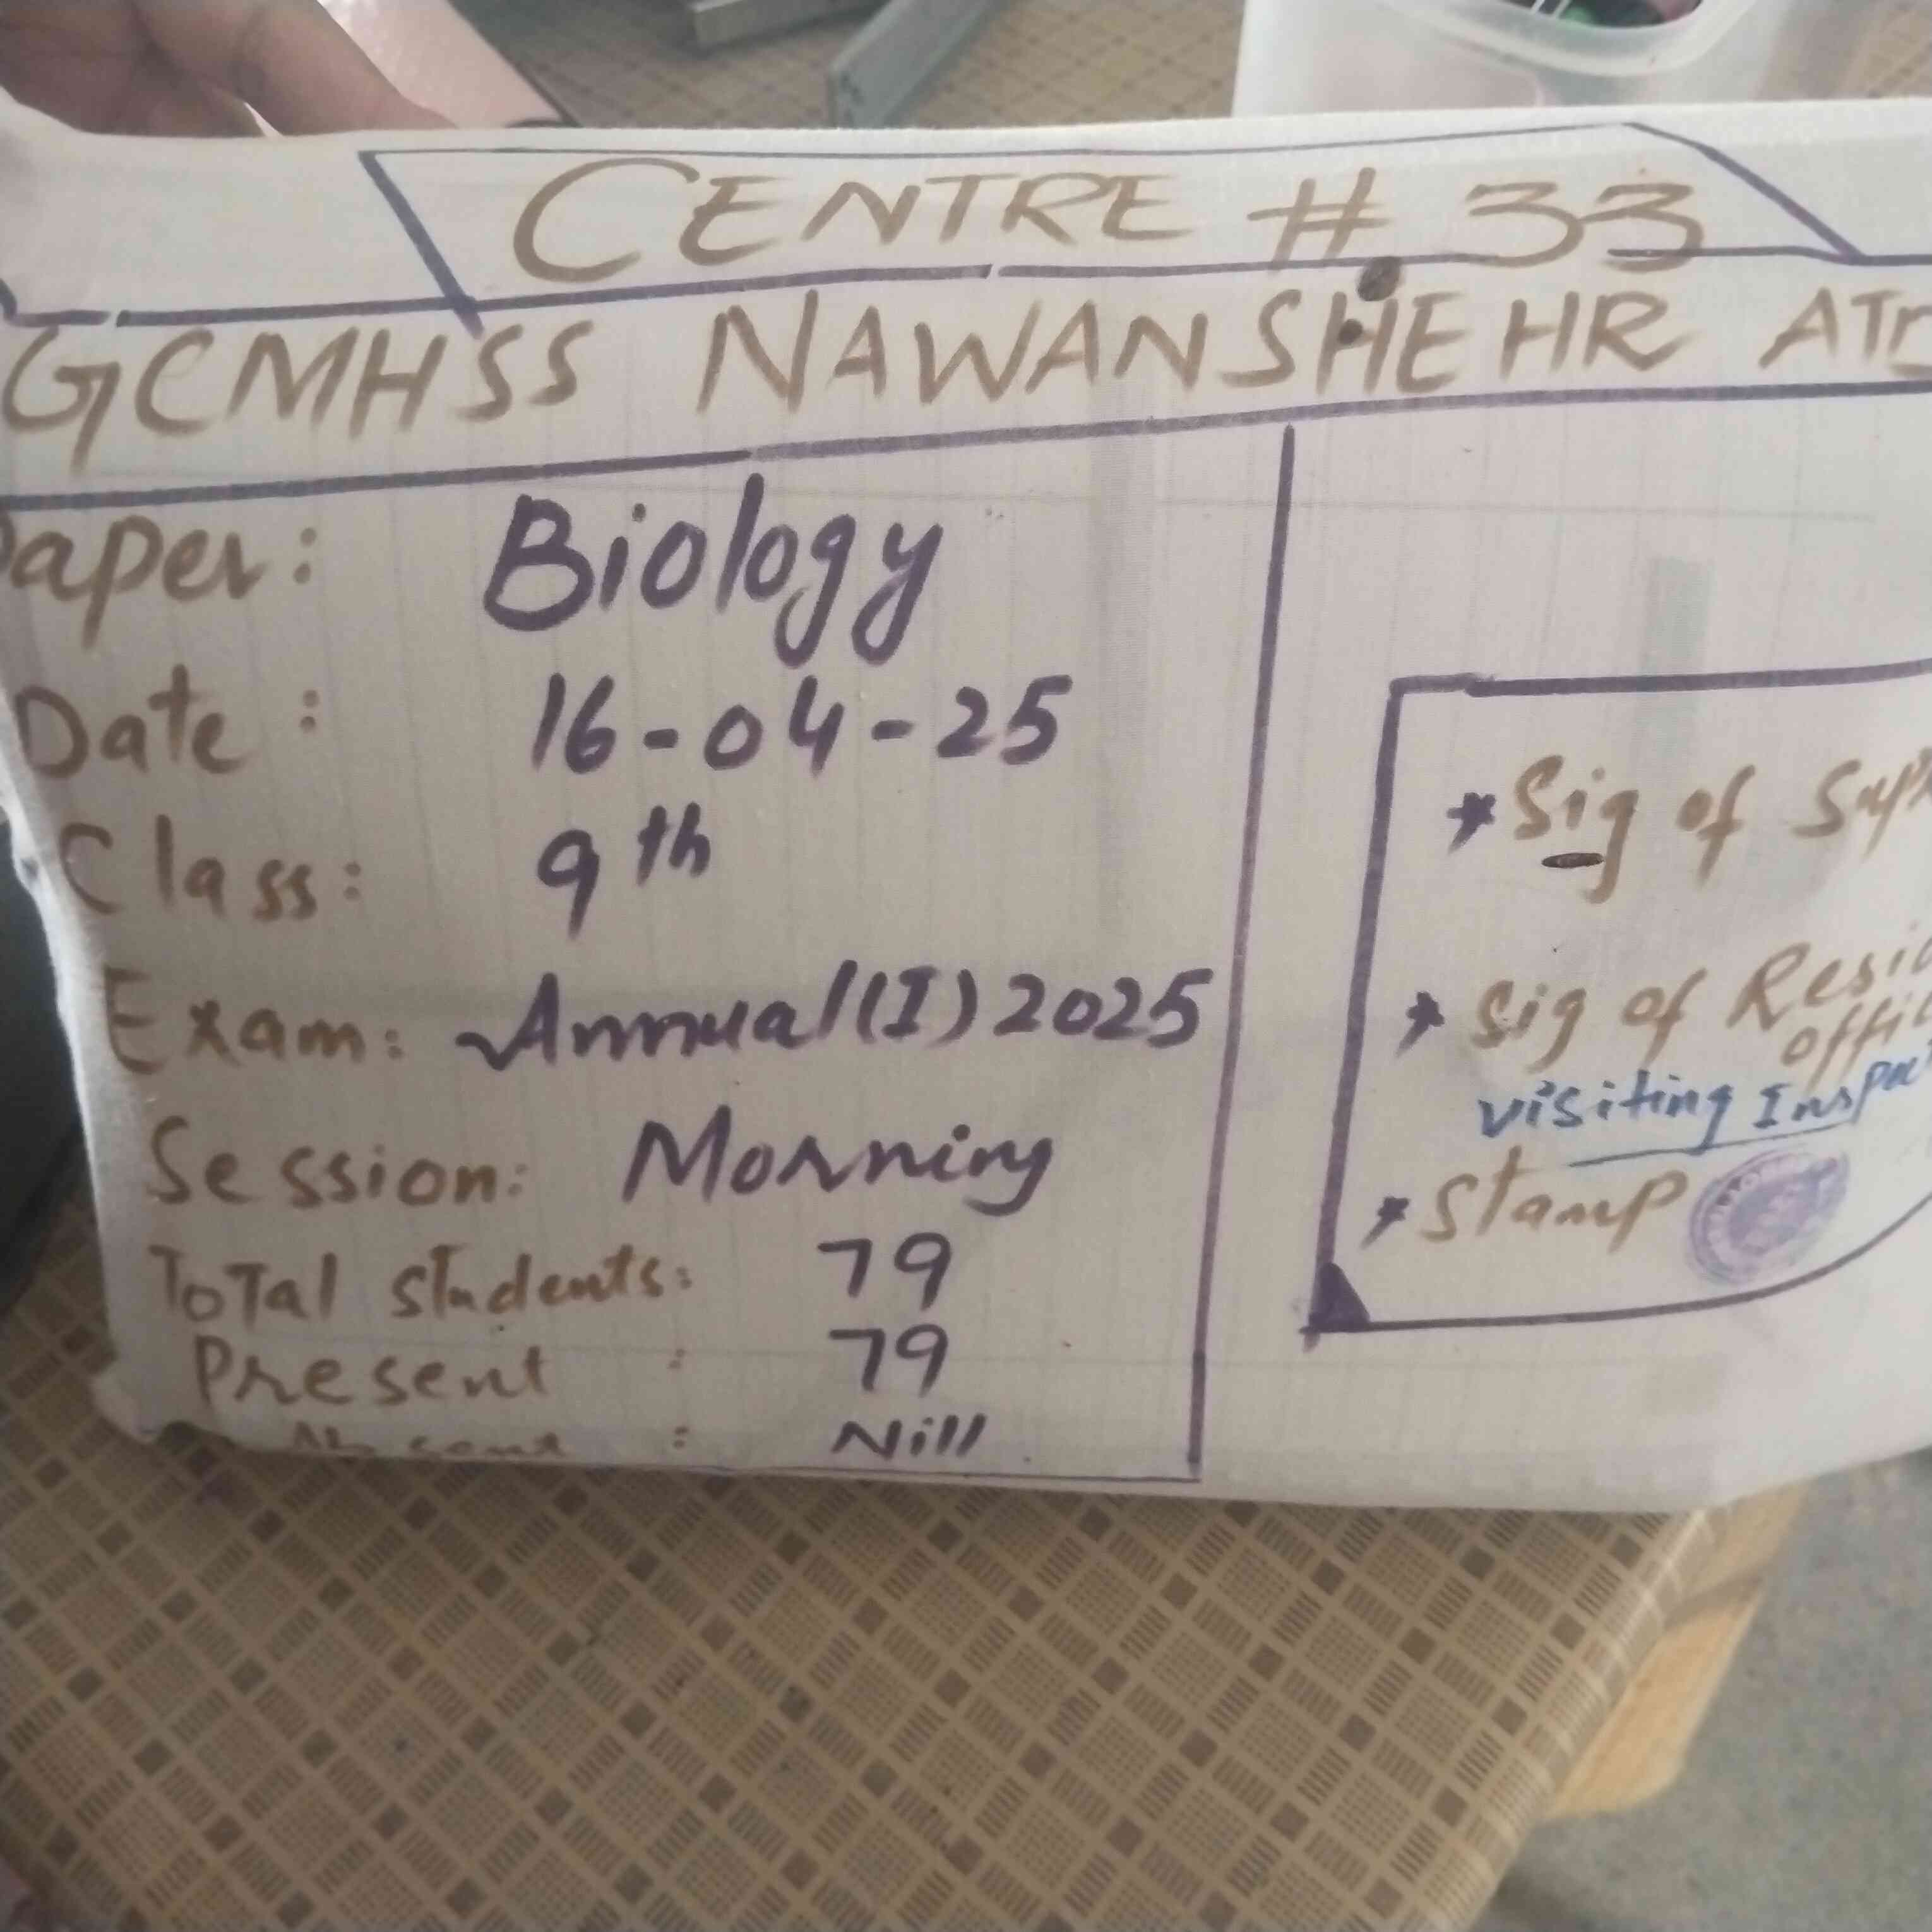 CENTRE # 33
GCMHSS NAWANSHEHR
Paper: Biology
Date: 16-04-25
Class: 9th
Exam: Annual(I) 2025
Session: Morning
Total students: 79
Present : 79
Absent : Nill
* Sig of
* Sig of
visiting
* Stamp